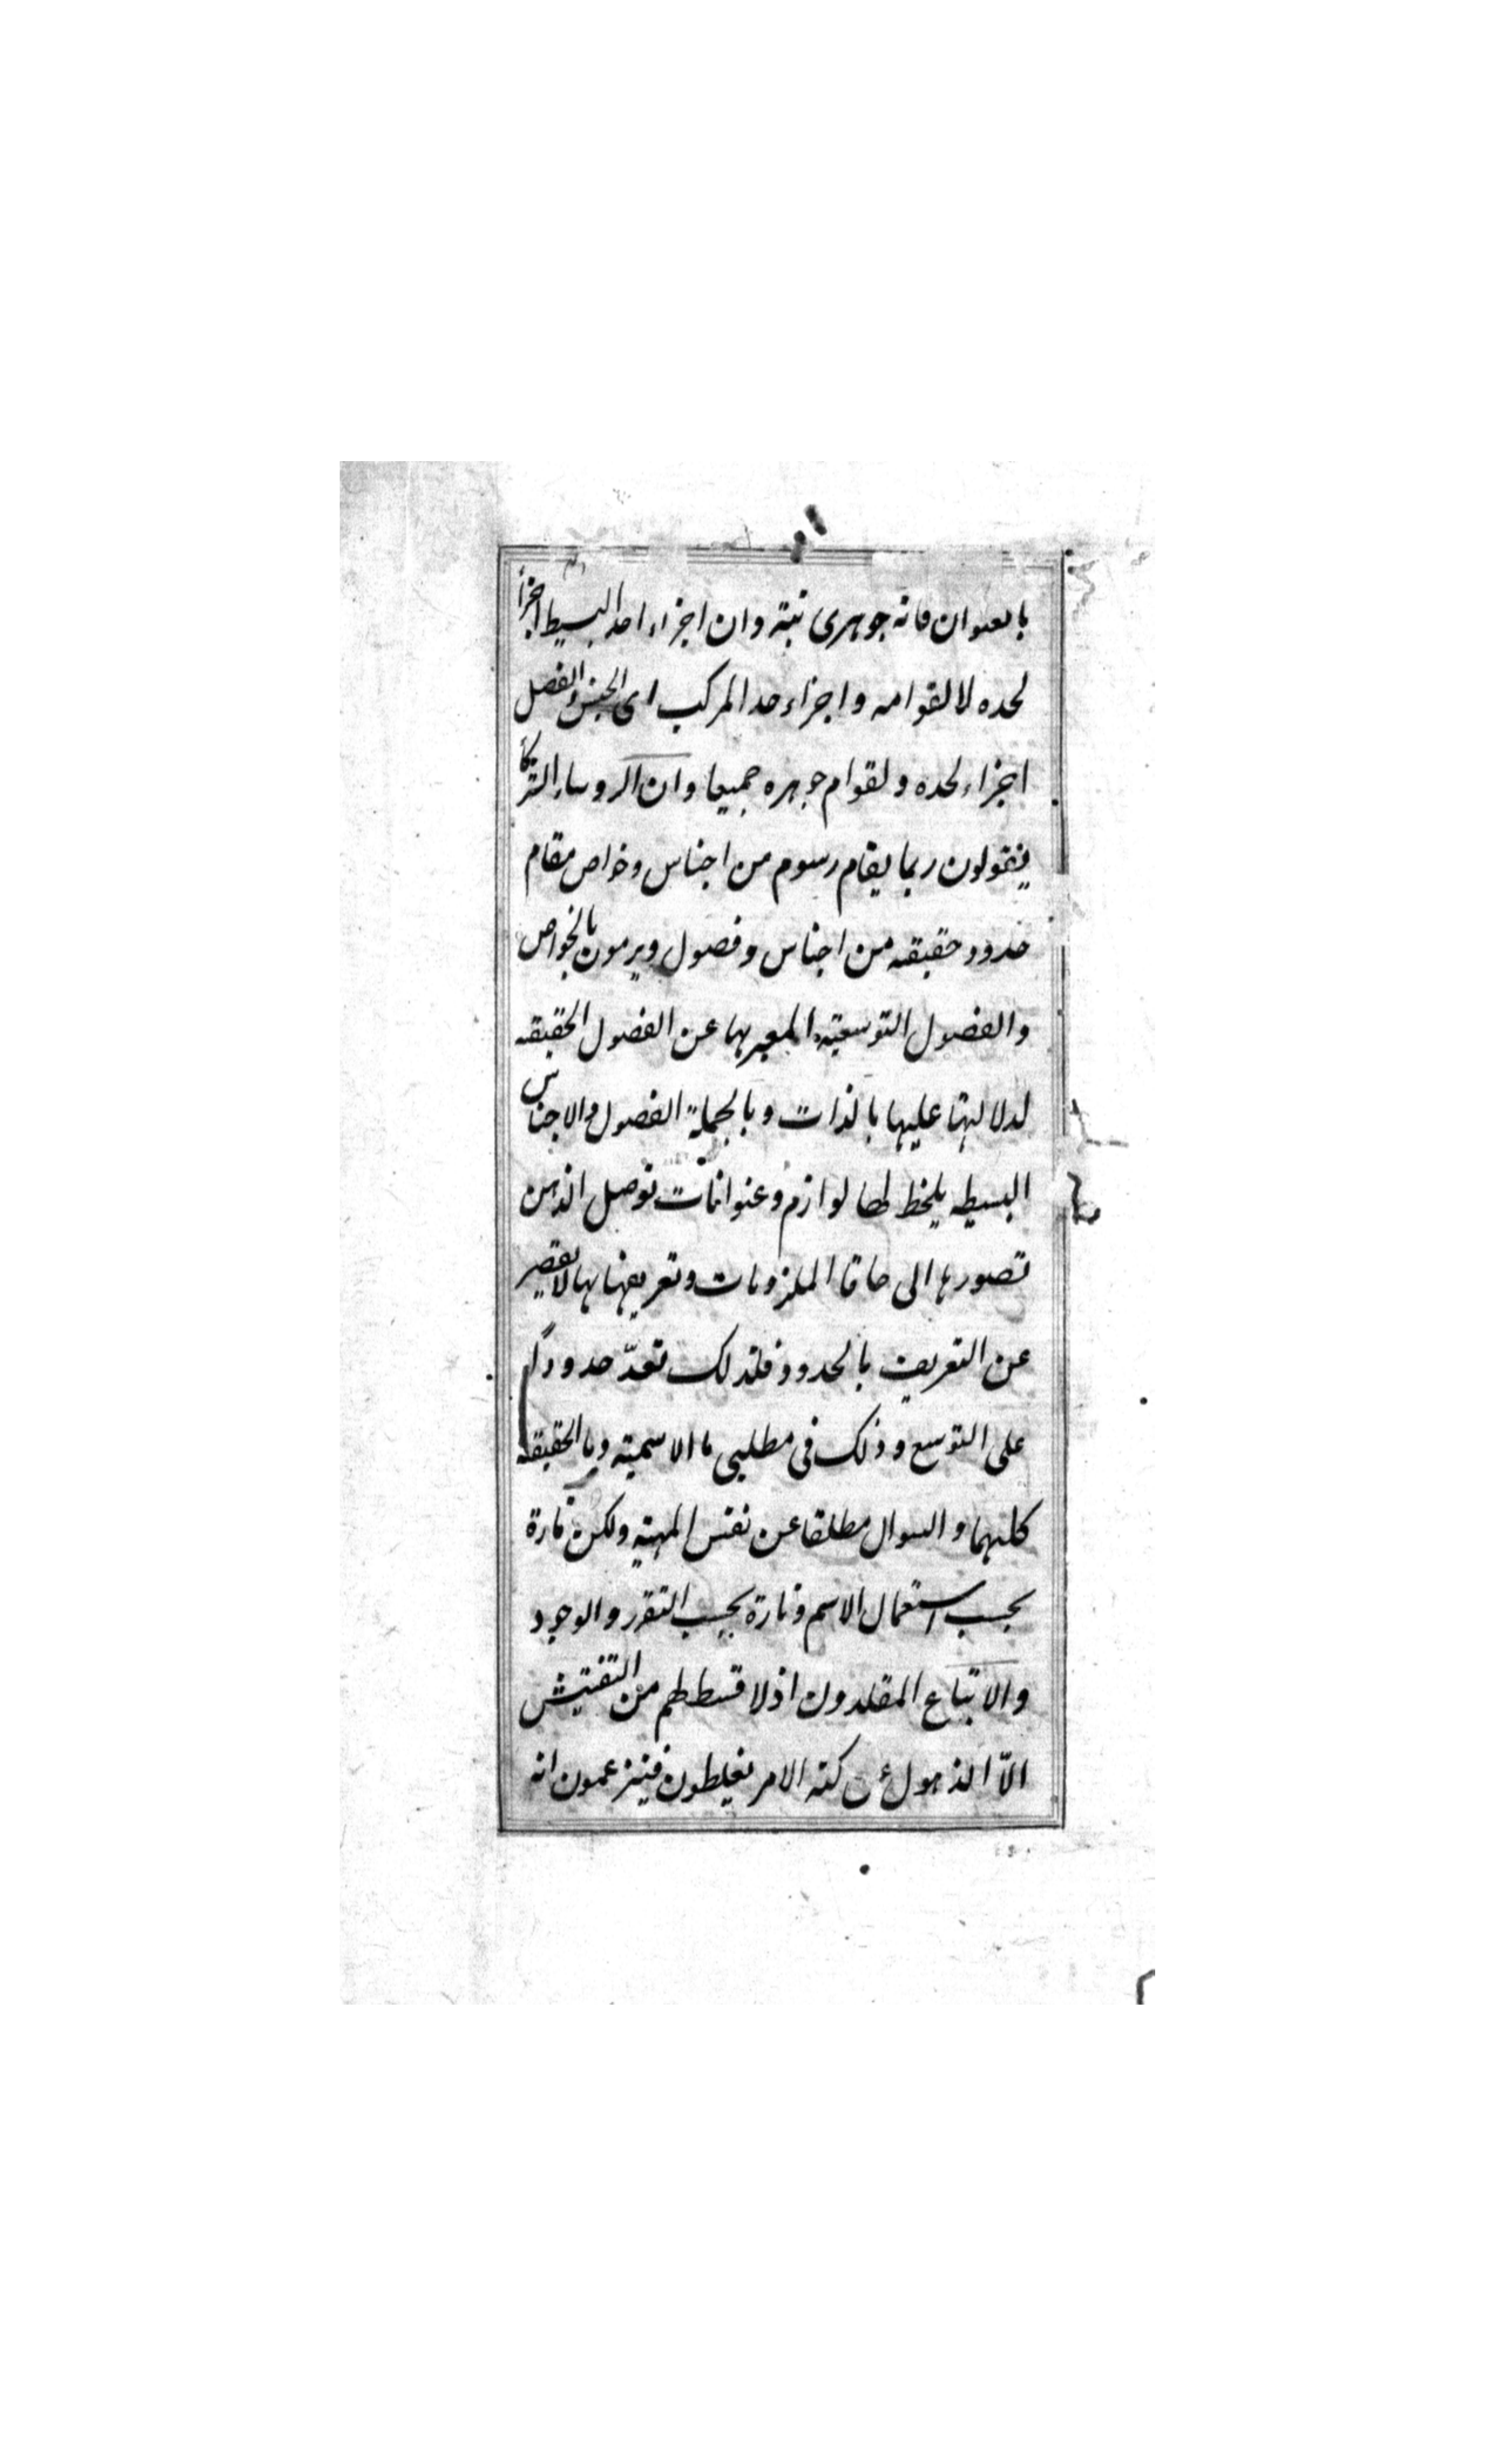 بالعنوان فانه جوهرى نبته وان اجزاء احد البسيط اجزأ
لحده لا لقوامه واجزاء حد المركب اى الجنس والفصل
اجزاء لحده ولقوام جوهره جميعا وان الروساء
فيقولون ربما يقام رسوم من اجناس وخواص مقام
حدود حقيقه من اجناس وفصول ويرمون بالخواص
والفصول التوسعيه المعبر بها عن الفصول الحقيقه
لدلالتها عليها بالذات وبالجملة الفصول والاجناس
البسيطه يلحظ لها لوازم وعنوانات توصل الذهن
تصورها الى حاق الملزومات وتعريفها بها لا يقصر
عن التعريف بالحدود فلذلك تعدّ حدوداً
على التوسع وذلك فى مطلبى ما الاسمية وما الحقيقه
كليهما والسوال مطلقا عن نفس المهية ولكن تارة
بحسب استعمال الاسم وتارة بحسب التقرر والوجود
والاتباع المقلدون اذ لا قسط لهم من التفتيش
الاّ الذهول عن كنه الامر يغلطون فيزعمون انه